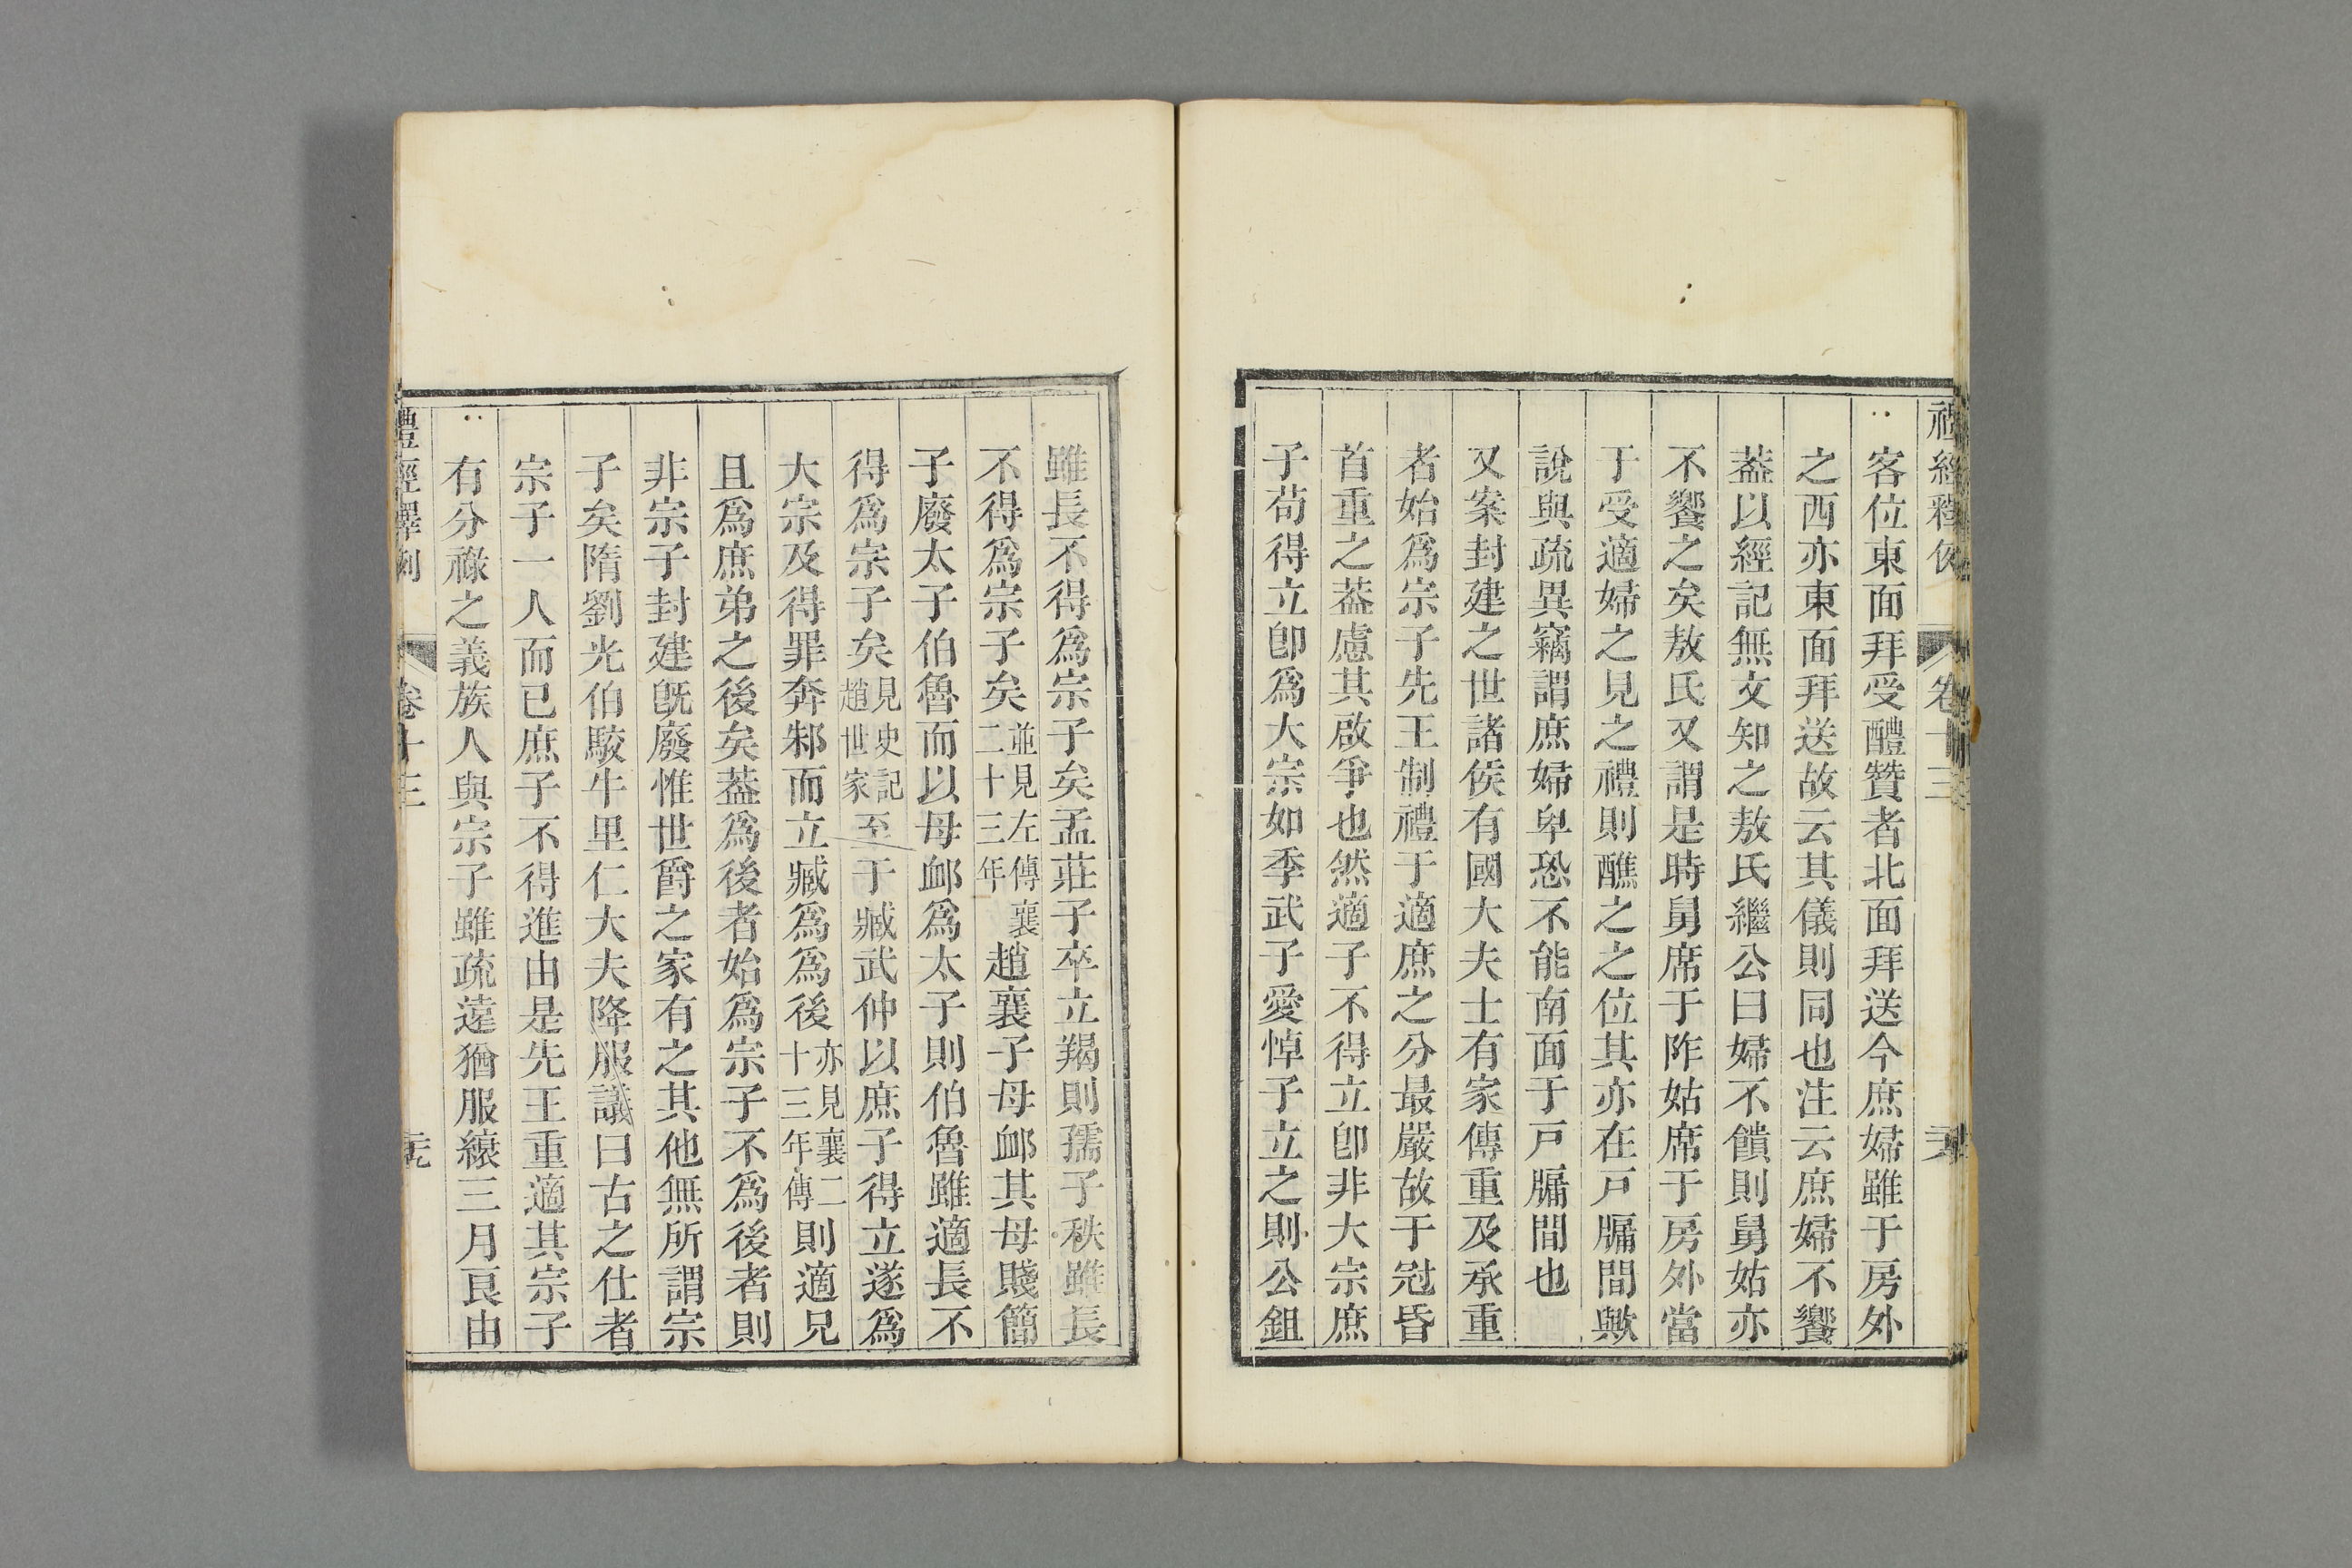 客位東面拜受醴贊者北面拜送今庶婦雖于房外
之西亦東面拜送故云其儀則同也注云庶婦不饗
葢以經記無文知之敖氏繼公曰婦不饋則舅姑亦
不饗之矣敖氏又謂是時舅席于阼姑席于房外當
于受適婦之見之禮則醮之之位其亦在戸牖間歟
說與疏異竊謂庶婦卑恐不能南面于戸牖間也
又案封建之世諸侯有國大夫士有家傳重及承重
者始爲宗子先王制禮于適庶之分最嚴故于冠昏
首重之葢慮其啟爭也然適子不得立卽非大宗庶
子苟得立卽爲大宗如季武子愛悼子立之則公鉏
雖長不得爲宗子矣孟莊子卒立羯則孺子秩雖長
不得爲宗子矣並見左傳襄二十三年趙襄子母䘏其母賤簡
子廢太子伯魯而以母䘏爲太子則伯魯雖適長不
得爲宗子矣見史記趙世家至于臧武仲以庶子得立遂爲
大宗及得罪奔邾而立臧爲爲後亦見襄二十三年傳則適兄
且爲庶弟之後矣葢爲後者始爲宗子不爲後者則
非宗子封建旣廢惟世爵之家有之其他無所謂宗
子矣隋劉光伯駮牛里仁大夫降服議曰古之仕者
宗子一人而已庶子不得進由是先王重適其宗子
有分祿之義族人與宗子雖疏遠猶服縗三月良由
禮經釋例
卷十三